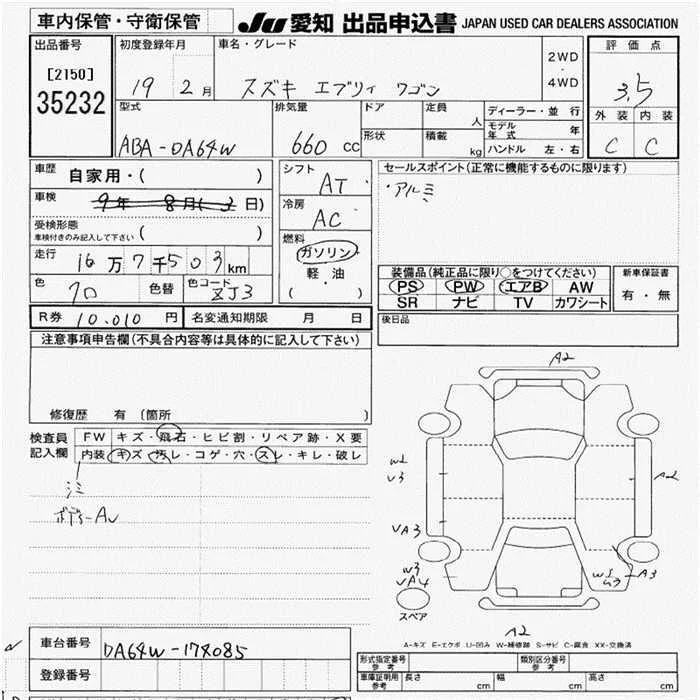 車内保管・守衛保管
JU 愛知 出品申込書 JAPAN USED CAR DEALERS ASSOCIATION
出品番号
[2150]
35232
初度登録年月
19 2月
車名・グレード
スズキ エブリィ ワゴン
2WD
・
4WD
評価点
3.5
外装 内装
C C
型式
ABA-DA64W
排気量
660 cc
ドア
形状
定員 人
積載 kg
ディーラー・並行
モデル年式 年
ハンドル 左・右
車歴 自家用・( )
車検 9年 8月( 3日)
受検形態
車検付きのみ記入して下さい ( )
走行 16万7千503km
色 クロ 色替 色コード ZJ3
シフト
AT
冷房
AC
燃料
ガソリン
軽・油
( )
セールスポイント(正常に機能するものに限ります)
・アルミ
装備品(純正品に限り○をつけてください)
PS PW エアB AW
SR ナビ TV カワシート
新車保証書
有・無
R券 10.010円 名変通知期限 月 日
後日品
注意事項申告欄(不具合内容等は具体的に記入して下さい)
修復歴 有 (箇所 )
検査員
記入欄
FW キズ・飛石・ヒビ割・リペア跡・X要
内装 キズ・汚レ・コゲ・穴・スレ・キレ・破レ
シミ
A2
V3
A2
VA3
W3
VA4
A3
スペア
A2
A-キズ E-エクボ U-凹み W-補修跡 S-サビ C-腐食 XX-交換済
車台番号 DA64W-174085
登録番号
形式指定番号 参考
類別区分番号 参考
車庫証明用 参考 長さ cm 幅 cm 高さ cm